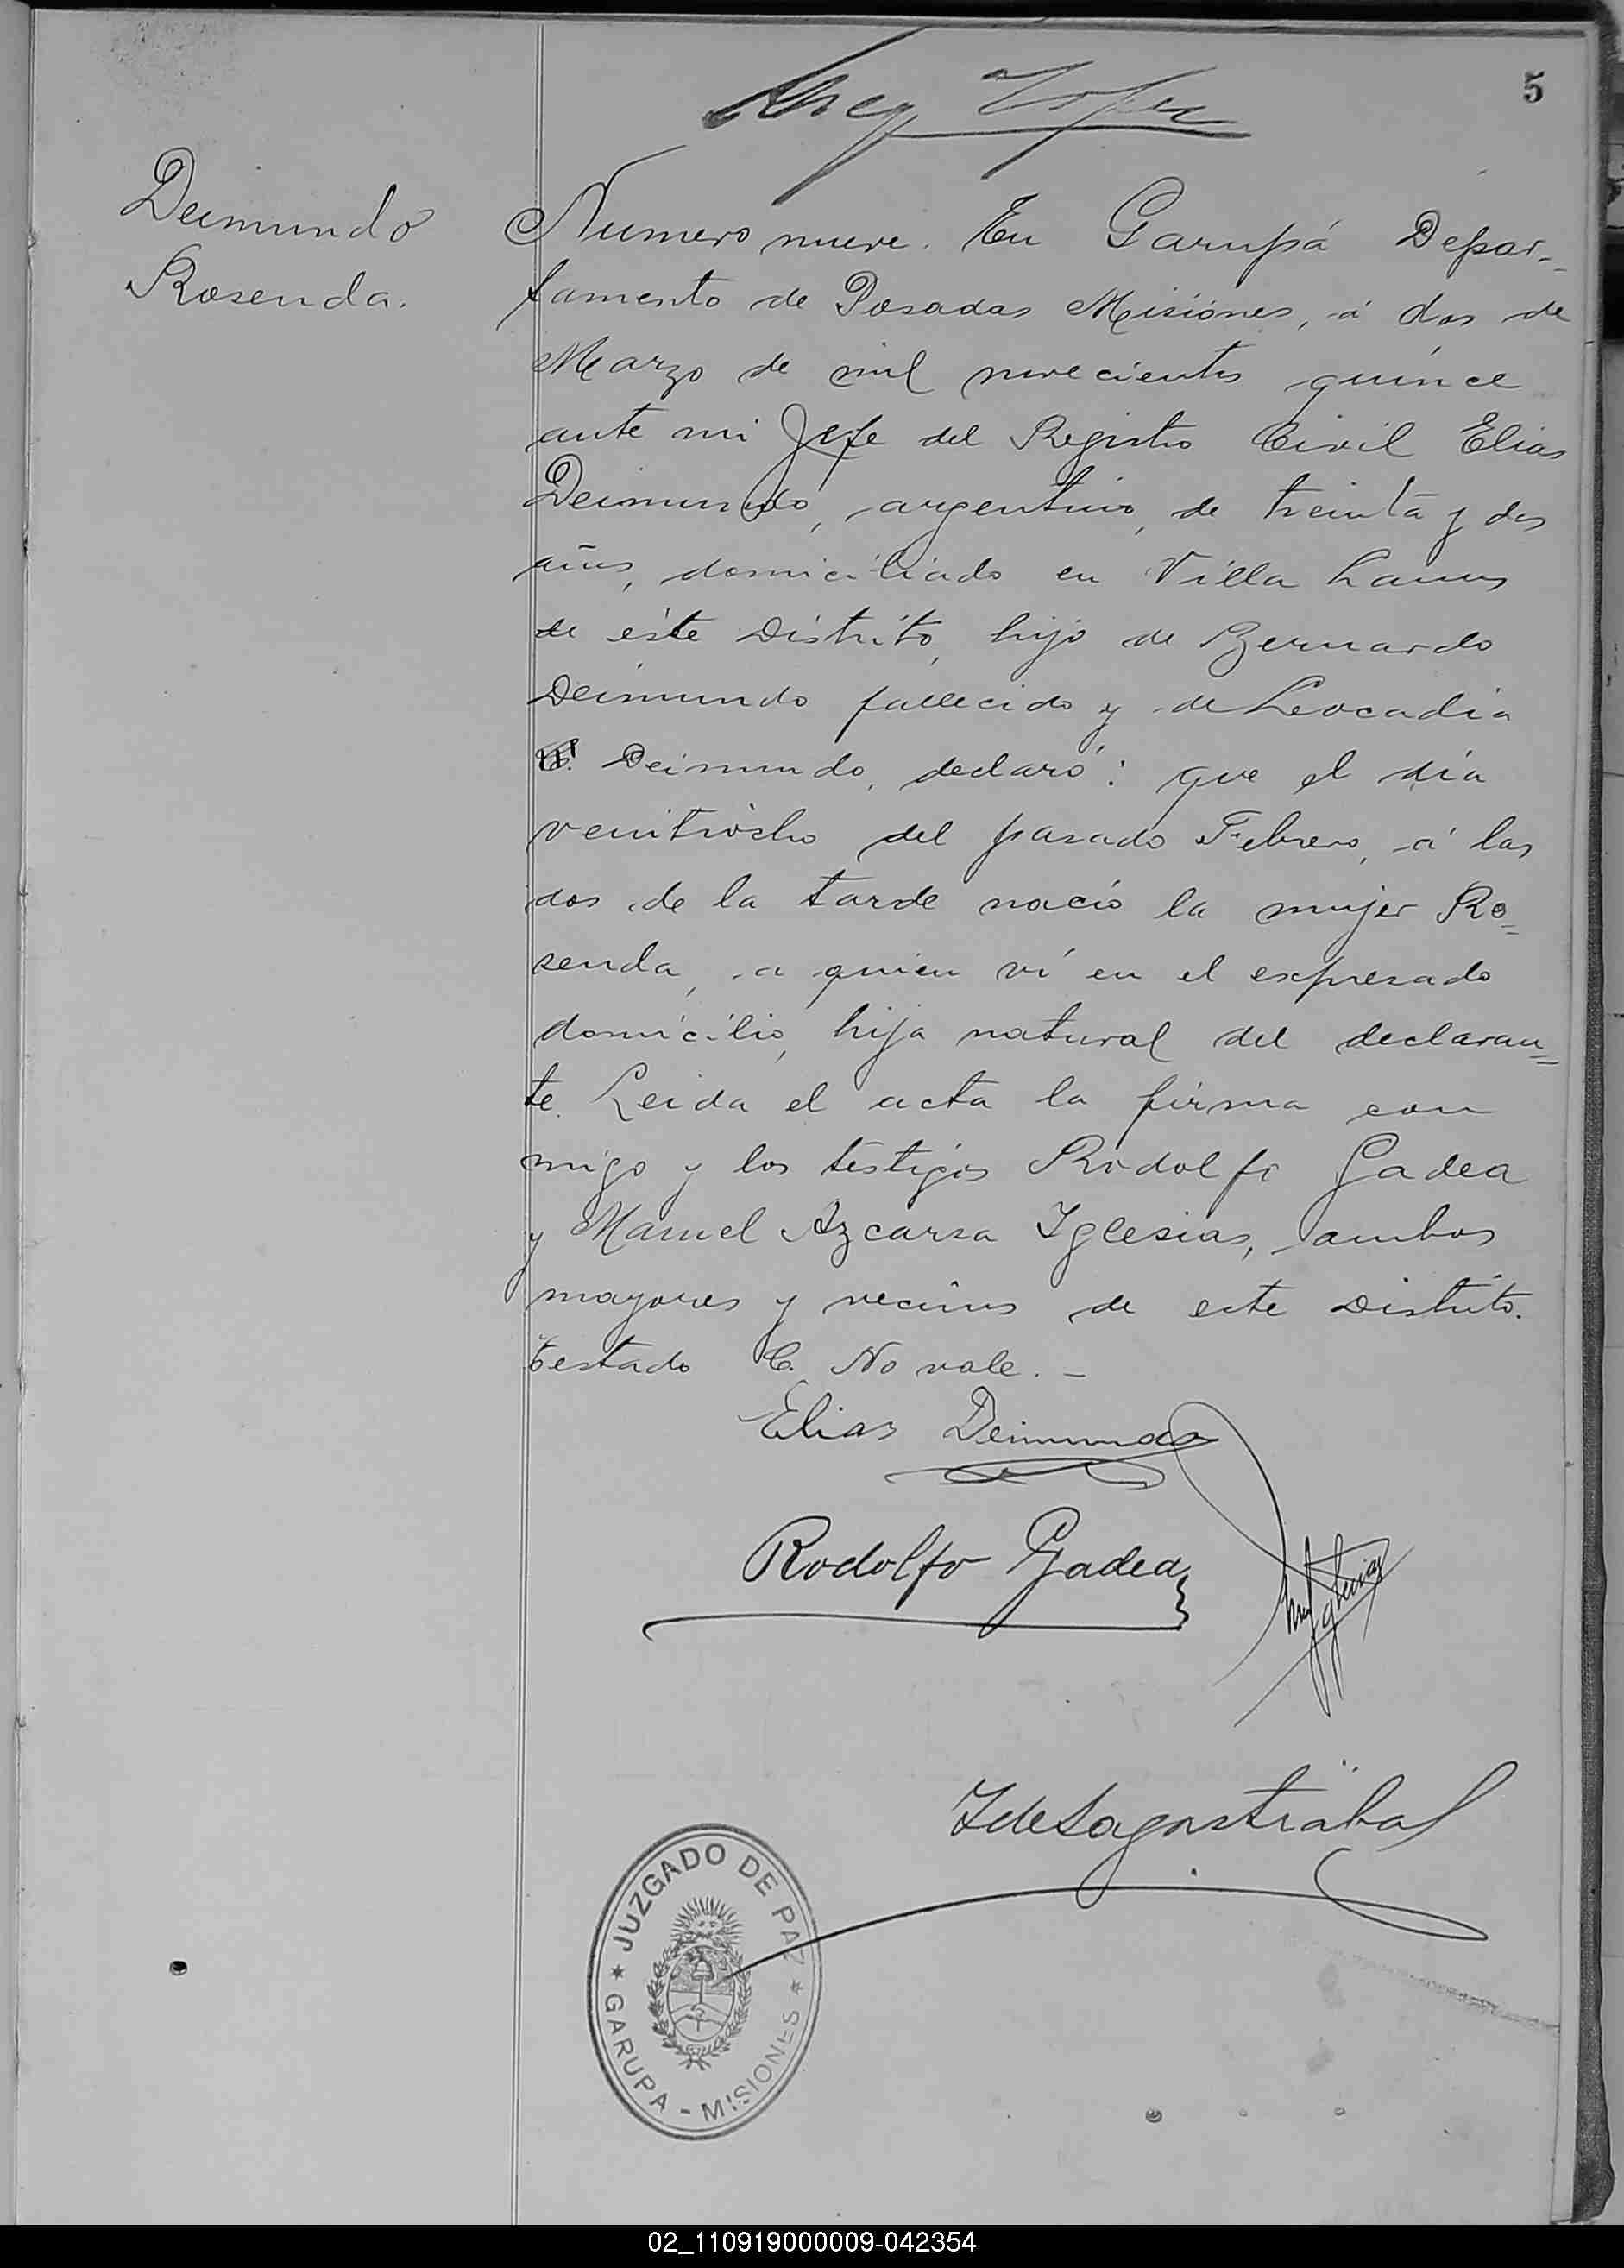 5
Deimundo
Rosenda.
Numero nueve. En Garupá Depar-
tamento de Posadas Misiones, á dos de
Marzo de mil novecientos quince
ante mi Jefe del Registro Civil Elias
Deimundo, argentino, de treinta y dos
años, domiciliado en Villa Lanus
de este Distrito, hijo de Bernardo
Deimundo fallecido y de Leocadia
Deimundo, declaró: que el día
veintiocho del pasado Febrero, á las
dos de la tarde nació la mujer Ro-
senda, a quien ví en el expresado
domicilio, hija natural del declaran-
te. Leida el acta la firma con
migo y los testigos Rodolfo Gadea
y Manuel Azcarza Iglesias, ambos
mayores y vecinos de este Distrito.
Testado C. No vale. -
Elias Deimundo
Rodolfo Gadea
JUZGADO DE PAZ
GARUPA - MISIONES
02_110919000009-042354